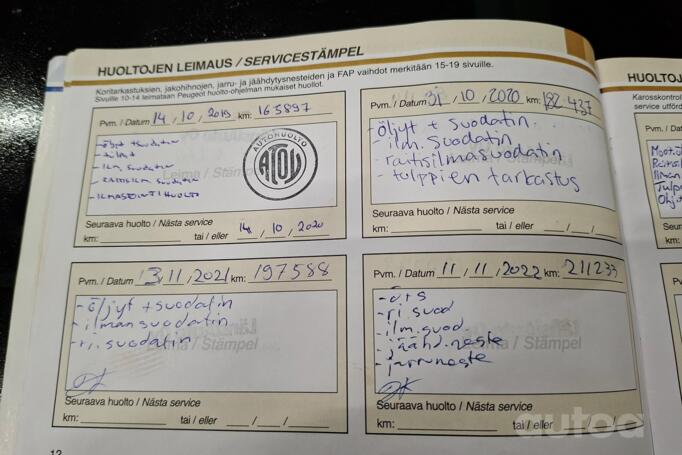 HUOLTOJEN LEIMAUS / SERVICESTÄMPEL
Koritarkastuksien, jakohihnojen, jarru- ja jäähdytysnesteiden ja FAP vaihdot merkitään 15-19 sivuille.
Sivuille 10-14 leimataan Peugeot huolto-ohjelman mukaiset huollot.
Pvm. / Datum 14 / 10 / 2019 km: 165897
- ilm. suodatin
- raitisilm. suodatin
- ILMASTOINTIHUOLTO
AUTOHUOLTO
ATOJ
Leima / Stämpel
Seuraava huolto / Nästa service
km: tai / eller 14 / 10 / 2020
Pvm. / Datum 31 / 10 / 2020 km: 182 437
- öljyt + suodatin
- ilm. suodatin
- raitisilmasuodatin
- tulppien tarkastus
Seuraava huolto / Nästa service
km: tai / eller / /
Pvm. / Datum 13 / 11 / 2021 km: 197588
- öljyt + suodatin
- ilmansuodatin
- r.i. suodatin
Leima / Stämpel
Seuraava huolto / Nästa service
km: tai / eller / /
Pvm. / Datum 11 / 11 / 2022 km: 211233
- ö+s
- r.i. suod
- ilm. suod
- jäähd. neste
- jarruneste
Leima / Stämpel
Seuraava huolto / Nästa service
km: tai / eller / /
12
HUOLTOJ
Karosskontrol
service utförd
Pvm.
Seuraa
km:
Pvm.
Seura
km:
autoa